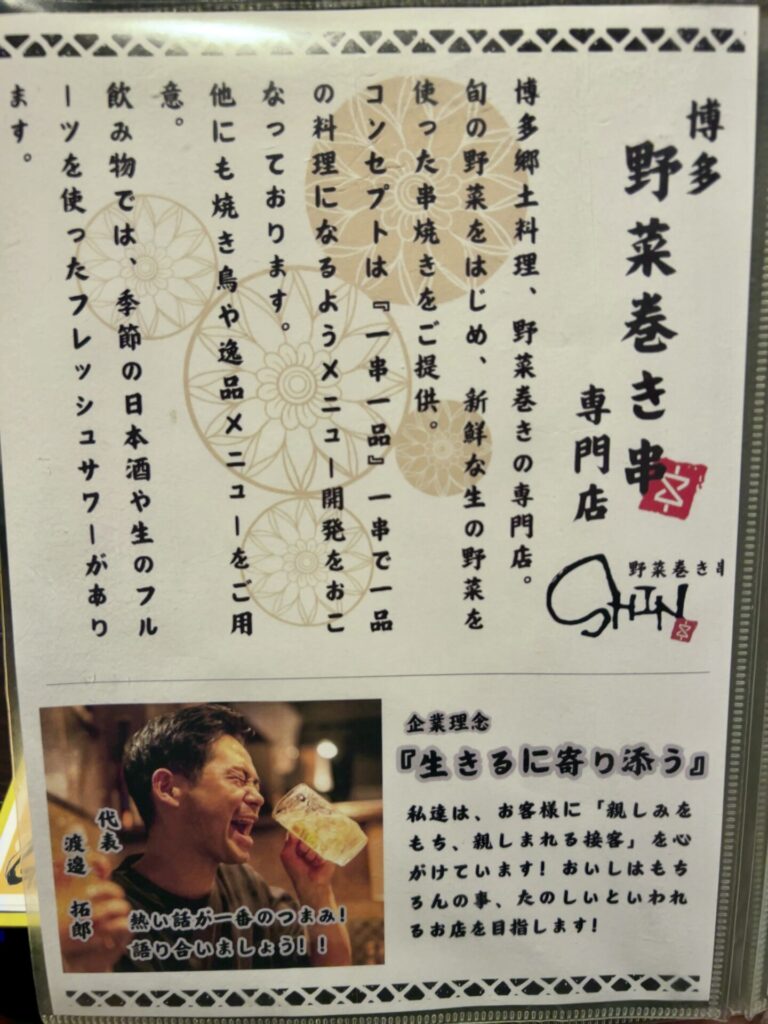 博多
野菜巻き串
専門店
野菜巻き串
SHIN
博多郷土料理、野菜巻きの専門店。
旬の野菜をはじめ、新鮮な生の野菜を
使った串焼きをご提供。
コンセプトは『一串一品』一串で一品
の料理になるようメニュー開発をおこ
なっております。
他にも焼き鳥や逸品メニューをご用
意。
飲み物では、季節の日本酒や生のフル
ーツを使ったフレッシュサワーがあり
ます。
企業理念
『生きるに寄り添う』
私達は、お客様に「親しみを
もち、親しまれる接客」を心
がけています!おいしはもち
ろんの事、たのしいといわれ
るお店を目指します!
代表
渡邉 拓郎
熱い話が一番のつまみ!
語り合いましょう!!